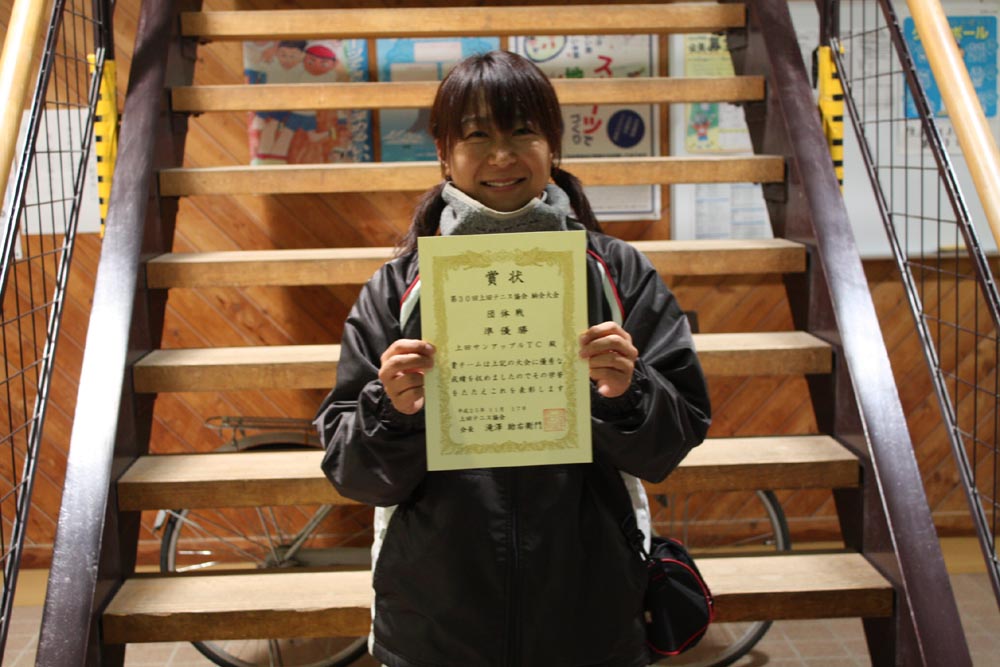 スポーツで
づくり
賞状
第30回上田テニス協会 納会大会
団体戦
準優勝
上田サンアップルTC 殿
貴チームは上記の大会に優秀な
成績を収めましたのでその栄誉
をたたえこれを表彰します
平成25年 11月 17日
上田テニス協会
会長 滝澤 助右衛門